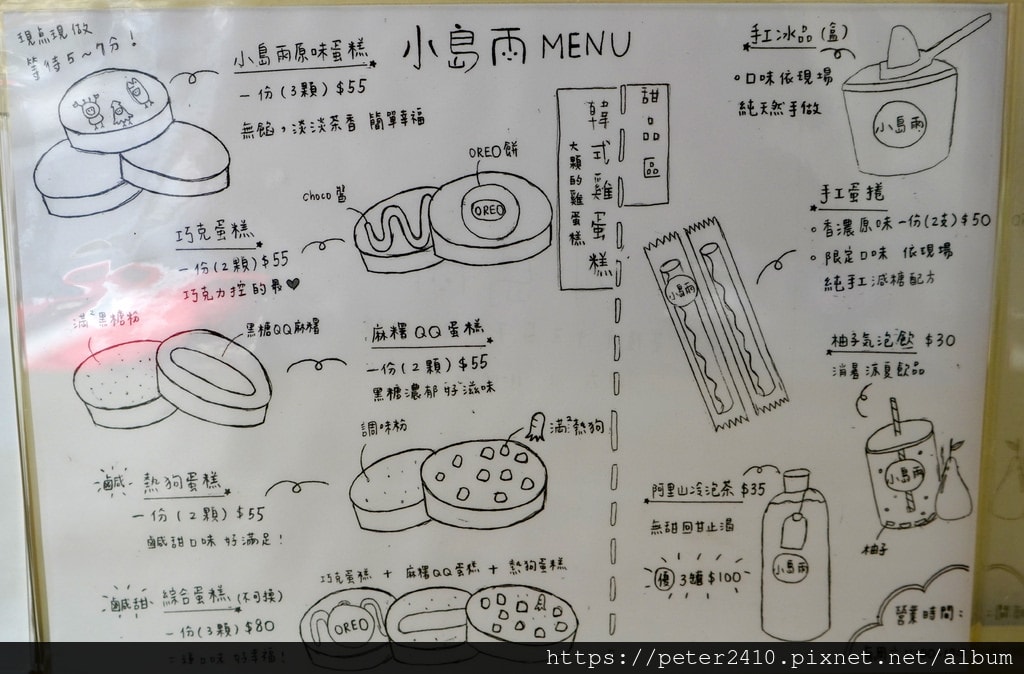 現点現做
等待5~7分!
小島雨 MENU
小島雨原味蛋糕
一份(3顆)$55
無餡,淡淡茶香 簡單幸福
OREO餅
OREO
choco醬
巧克蛋糕
一份(2顆)$55
巧克力控的最♥
滿²黑糖粉
黑糖QQ麻糬
麻糬QQ蛋糕
一份(2顆)$55
黑糖濃郁好滋味
調味粉
滿²熱狗
鹹 熱狗蛋糕
一份(2顆)$55
鹹甜口味 好滿足!
巧克蛋糕 + 麻糬QQ蛋糕 + 熱狗蛋糕
鹹甜 綜合蛋糕(不可換)
一份(3顆)$80
OREO
韓式雞蛋糕
大顆的雞蛋糕
甜品區
手工冰品(盒)
口味依現場
純天然手做
小島雨
手工蛋捲
香濃原味一份(2支)$50
限定口味 依現場
純手工減糖配方
小島雨
柚子氣泡飲 $30
消暑涼夏飲品
小島雨
柚子
阿里山冷泡茶 $35
無甜回甘止渴
優 3罐$100
小島雨
營業時間:
https://peter2410.pixnet.net/album